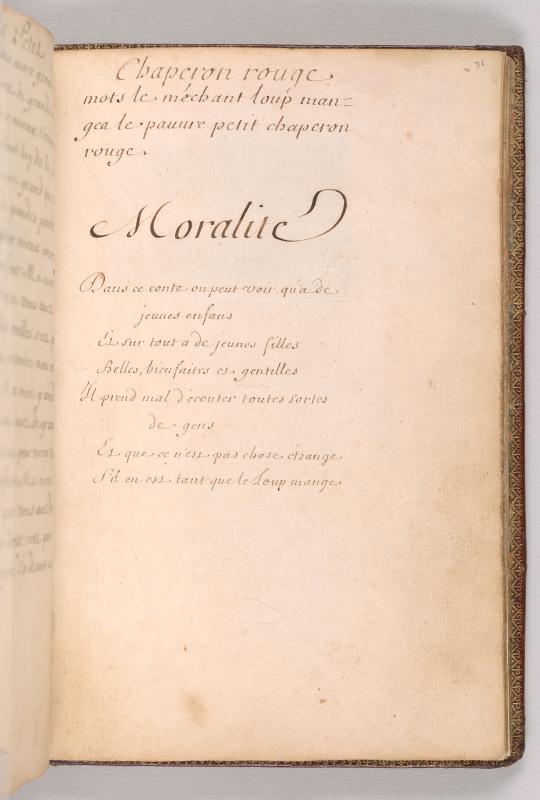 31
Chaperon rouge.
mots le méchant loup man=
gea le pauure petit chaperon
rouge.
Moralité
Dans ce conte on peut voir qu'a de
jeunes enfans
Et sur tout a de jeunes filles
Belles, bienfaites et gentilles
Il prend mal d'ecouter toutes sortes
de gens
Et que ce n'est pas chose étrange
S'il en est tant que le Loup mange